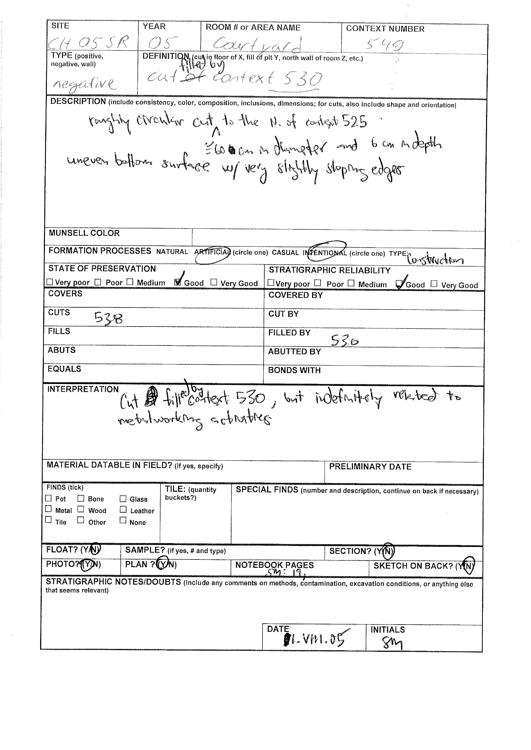 SITE YEAR ROOM # or AREA NAME CONTEXT NUMBER
CH 05 SR 05 Courtyard 549
TYPE (positive, negative, wall) DEFINITION (cut in floor of X, fill of pit Y, north wall of room Z, etc.)
negative cut filled by context 530
DESCRIPTION (include consistency, color, composition, inclusions, dimensions; for cuts, also include shape and orientation)
roughly circular cut to the N. of context 525
cm in diameter and 6 cm in depth
uneven bottom surface w/ very slightly sloping edges
MUNSELL COLOR
FORMATION PROCESSES NATURAL ARTIFICIAL (circle one) CASUAL INTENTIONAL (circle one) TYPE: Construction
STATE OF PRESERVATION STRATIGRAPHIC RELIABILITY
Very poor Poor Medium Good Very Good Very poor Poor Medium Good Very Good
COVERS COVERED BY
CUTS 538 CUT BY
FILLS FILLED BY 530
ABUTS ABUTTED BY
EQUALS BONDS WITH
INTERPRETATION
Cut filled by context 530, but indefinitely related to
metalworking activities
MATERIAL DATABLE IN FIELD? (if yes, specify) PRELIMINARY DATE
FINDS (tick) TILE: (quantity buckets?) SPECIAL FINDS (number and description, continue on back if necessary)
Pot Bone Glass
Metal Wood Leather
Tile Other None
FLOAT? (Y/N) SAMPLE? (if yes, # and type) SECTION? (Y/N)
PHOTO? (Y/N) PLAN? (Y/N) NOTEBOOK PAGES SKETCH ON BACK? (Y/N)
SM: 19,
STRATIGRAPHIC NOTES/DOUBTS (Include any comments on methods, contamination, excavation conditions, or anything else
that seems relevant)
DATE INITIALS
1.VIII.05 SM